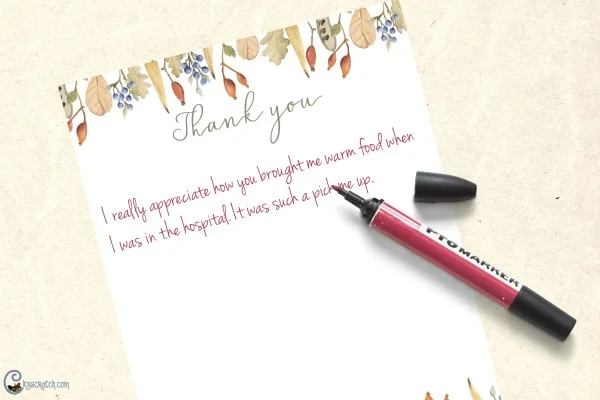 Thank you
I really appreciate how you brought me warm food when
I was in the hospital. It was such a pick me up.
PROMARKER